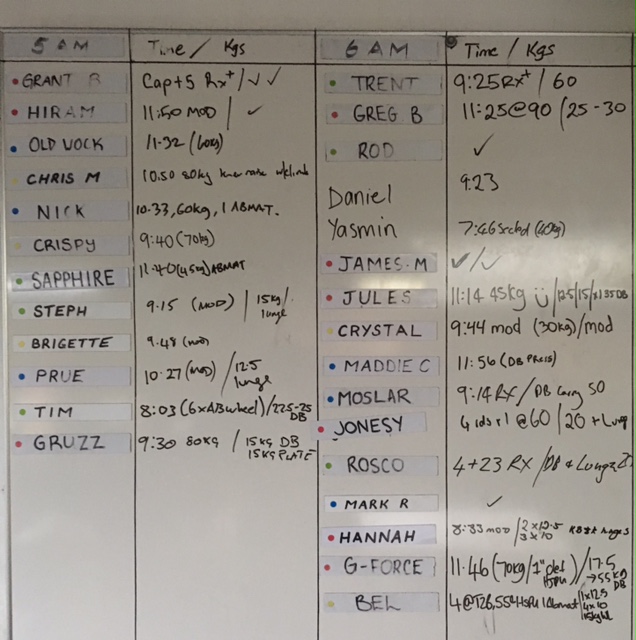 5 AM Time / Kgs
GRANT B Cap+5 Rx+/✓✓
HIRAM 11:50 MOD / ✓
OLD VOCK 11.32 (60kg)
CHRIS M 10.50 80kg knee raise
NICK 10.33, 60kg, 1 ABMAT.
CRISPY 9:40 (70kg)
SAPPHIRE 11.40 (45kg) ABMAT
STEPH 9.15 (MOD) / 15kg/ lunge
BRIGETTE 9.48 (mod)
PRUE 10.27 (mod) / 12.5 lunge
TIM 8:03 (6xABwheel)/22.5-25 DB
GRUZZ 9:30 80KG / 15KG DB
15KG PLATE
6 AM Time / Kgs
TRENT 9:25 Rx+ / 60
GREG B 11:25@90 / 25-30
ROD ✓
Daniel 9:23
Yasmin 7:46 (40kg)
JAMES.M ✓/✓
JULES 11:14 45kg
CRYSTAL 9:44 mod (30kg)/mod
MADDIE C 11:56 (DB PRESS)
MOSLAR 9:14 RX / DB Carry 50
JONESY @60 / 20 + Lunge
ROSCO 4+23 RX / DB + Lunge
MARK R ✓
HANNAH 8:33 mod / 2x12.5
3x10
G-FORCE 11.46 (70kg/1" def HSPU) / 17.5
→55KG DB
BEL HSPU 1 Abmat / 1x12.5
4x10
15kg